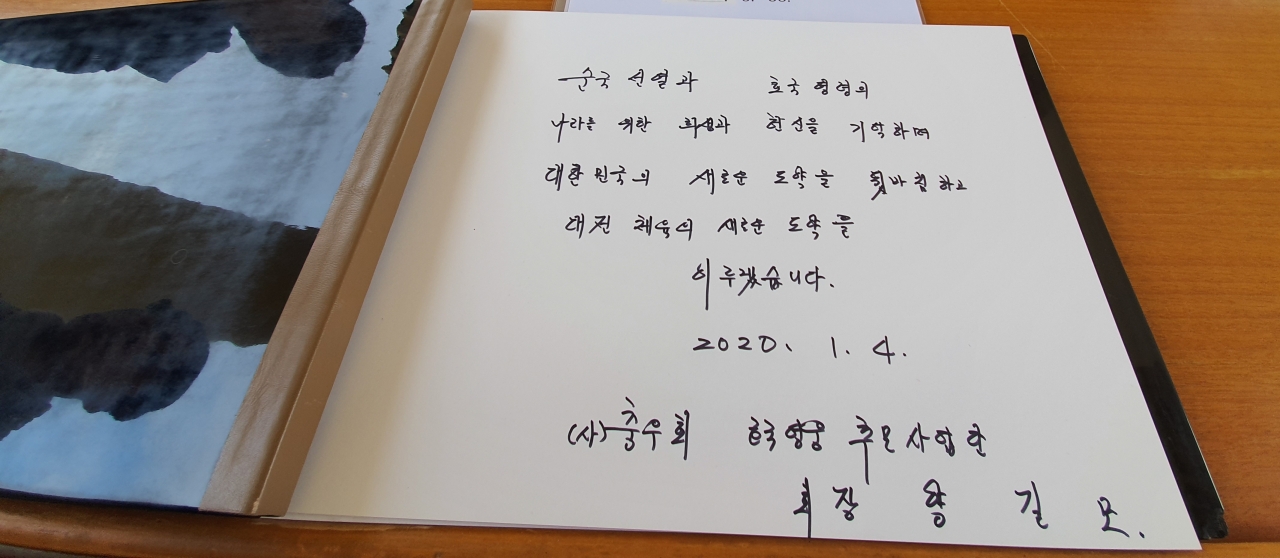 순국선열과 호국영령의
나라를 위한 희생과 헌신을 기억하며
대한민국의 새로운 도약을 뒷바침하고
대전 체육의 새로운 도약을
이루겠습니다.
2020. 1. 4.
(사)충우회 호국영웅 추모사업단
회장 양 길 모.